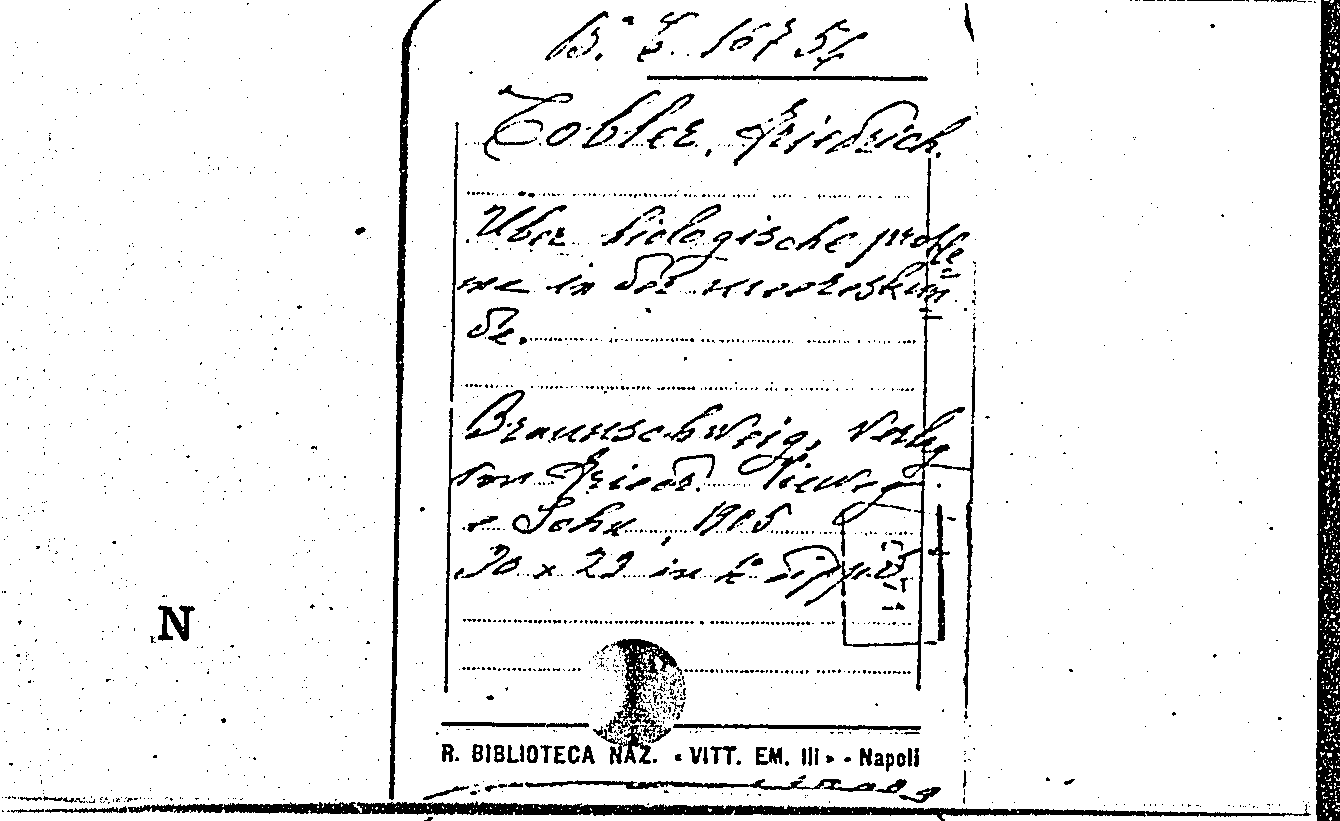 Tobler, Friedrich.
Über biologische proble
me in der meereskun
de.
Braunschweig, Verlag
von Friedr. Vieweg
e Sohn, 1905
20 x 22 in
N
R. BIBLIOTECA NAZ. « VITT. EM. III » - Napoli